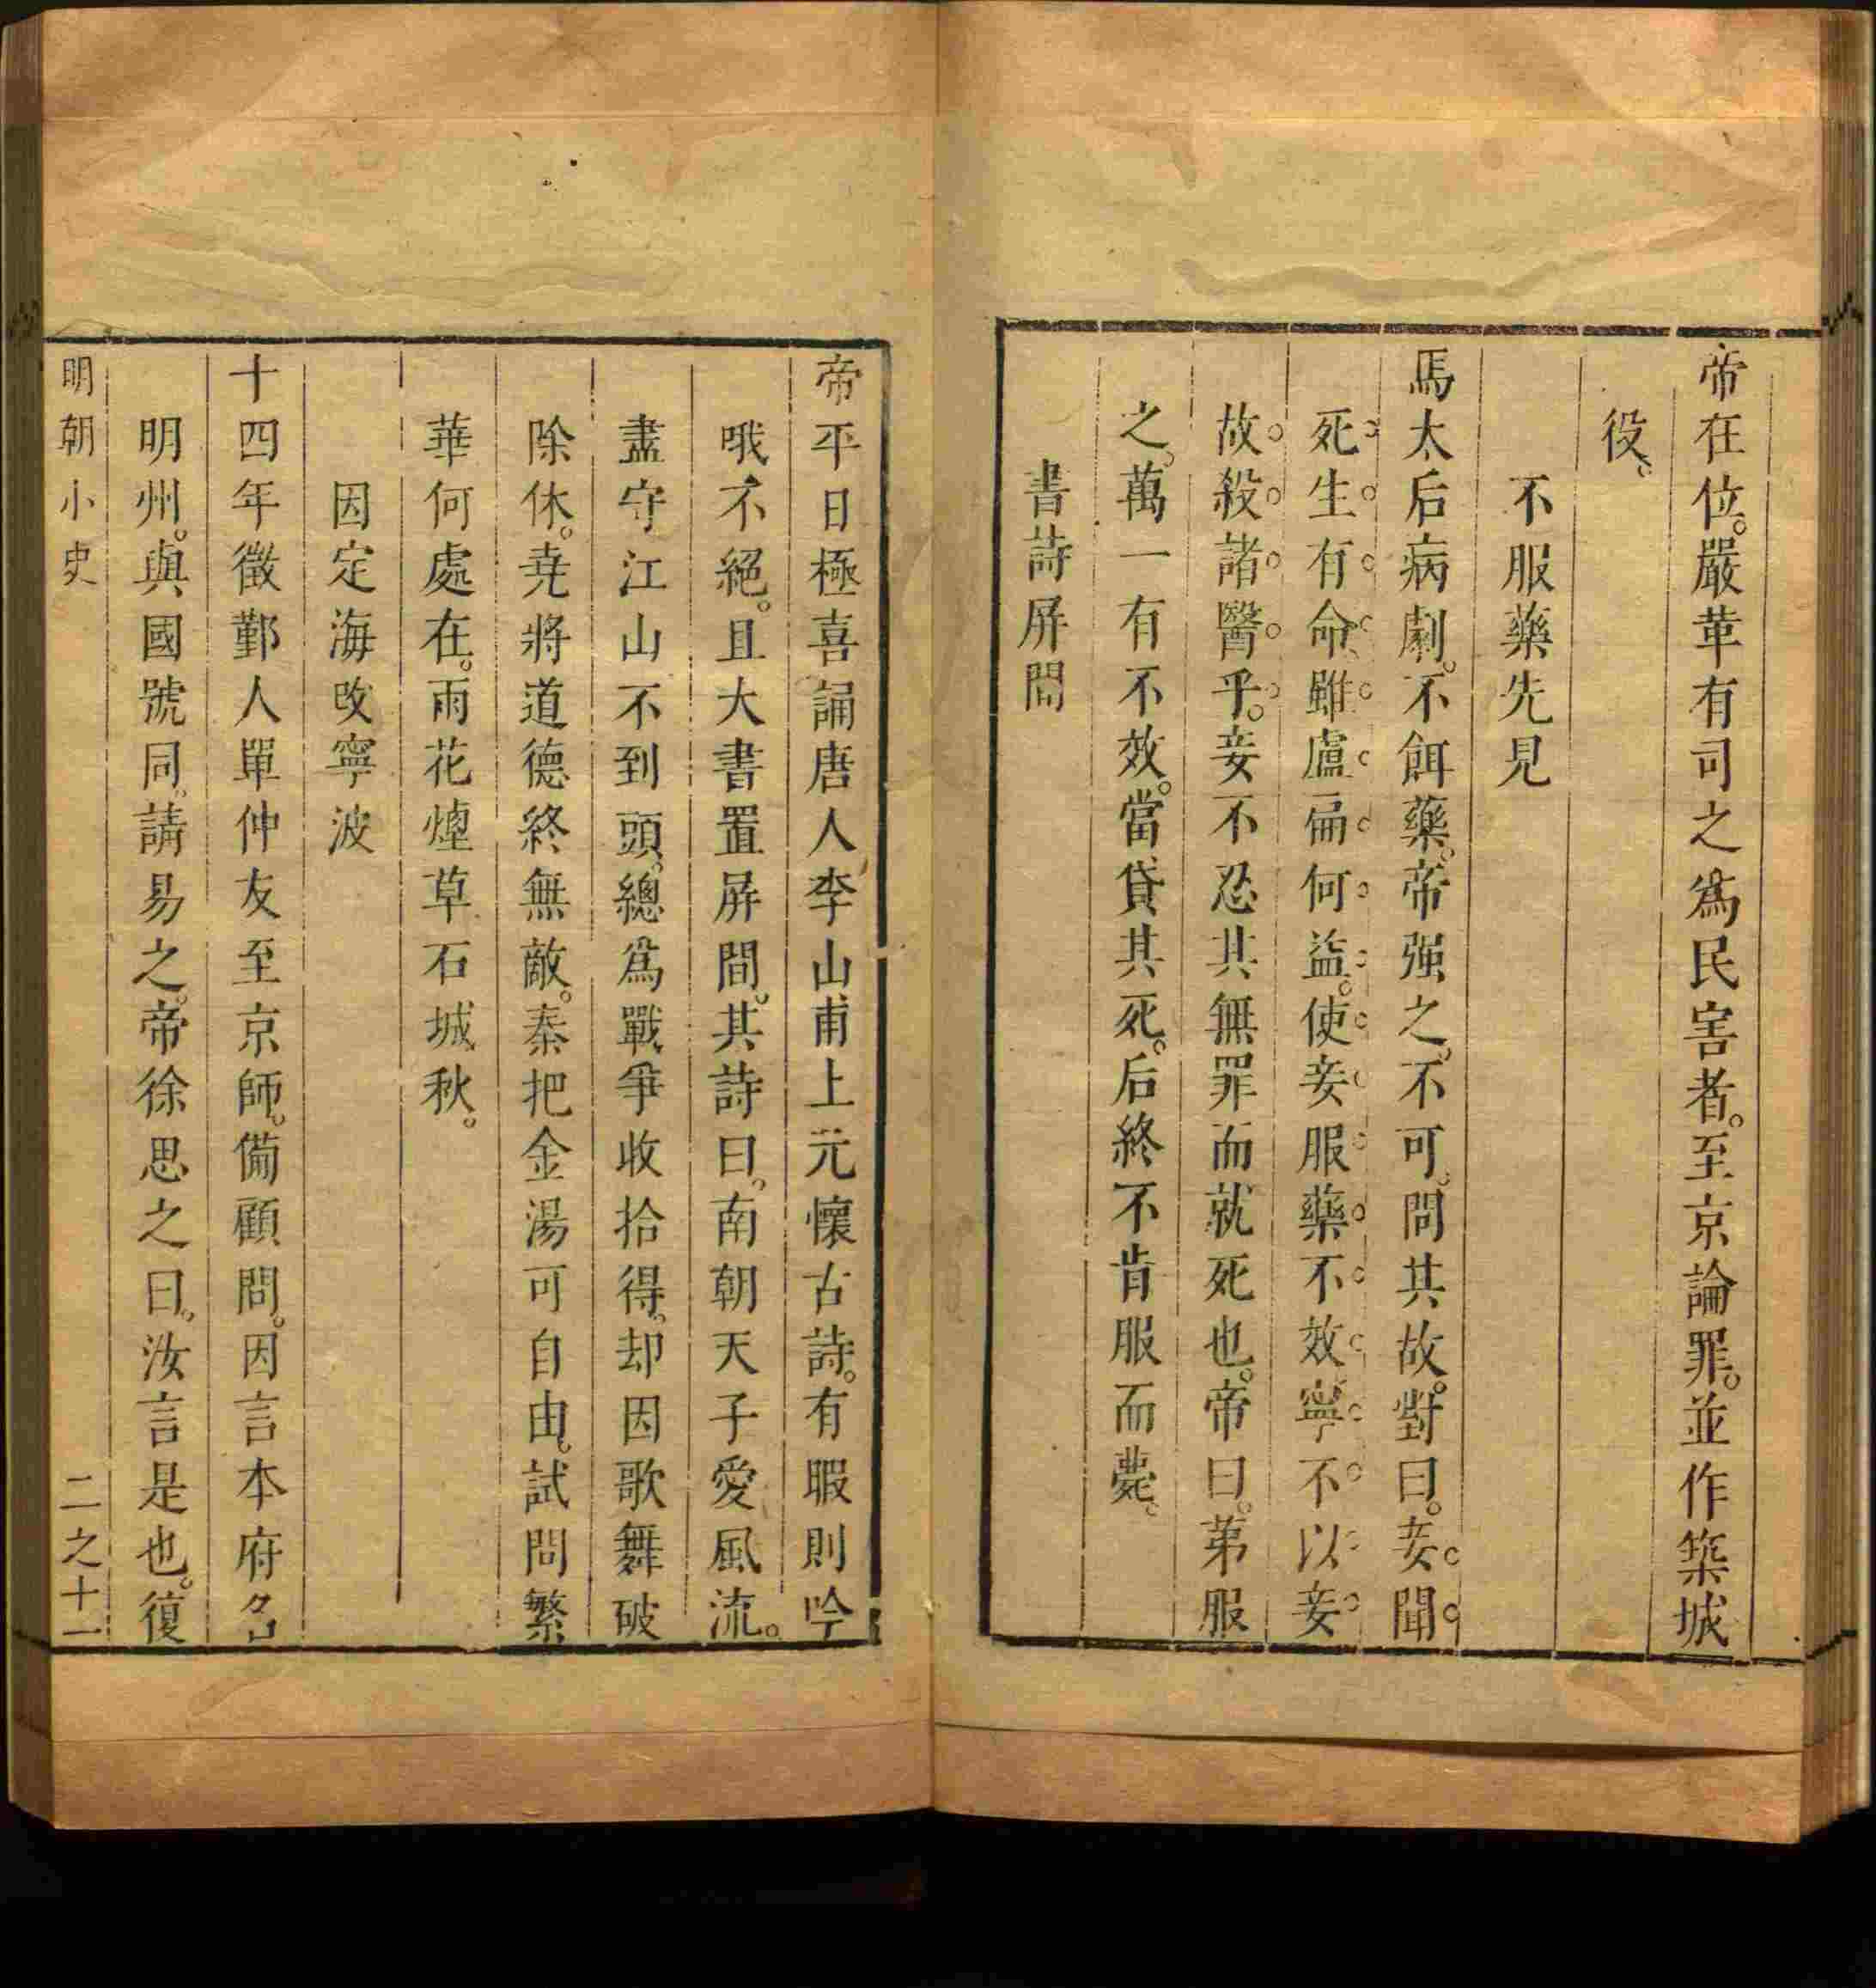 帝在位。嚴革有司之爲民害者。至京論罪。並作築城
役。
不服藥先見
馬太后病劇。不餌藥。帝强之。不可。問其故。對曰。妾聞
死生有命。雖盧扁何益。使妾服藥不效。寧不以妾
故殺諸醫乎。妾不忍其無罪而就死也。帝曰。第服
之。萬一有不效。當貸其死。后終不肯服而薨。
書詩屏間
帝平日極喜誦唐人李山甫上元懷古詩。有暇則吟
哦不絕。且大書置屏間。其詩曰。南朝天子愛風流。
盡守江山不到頭。總爲戰爭收拾得。却因歌舞破
除休。堯將道德終無敵。秦把金湯可自由。試問繁
華何處在。雨花煙草石城秋。
因定海改寧波
十四年徵鄞人單仲友至京師。備顧問。因言本府名
明州。與國號同。請易之。帝徐思之曰。汝言是也。復
明朝小史 二之十一